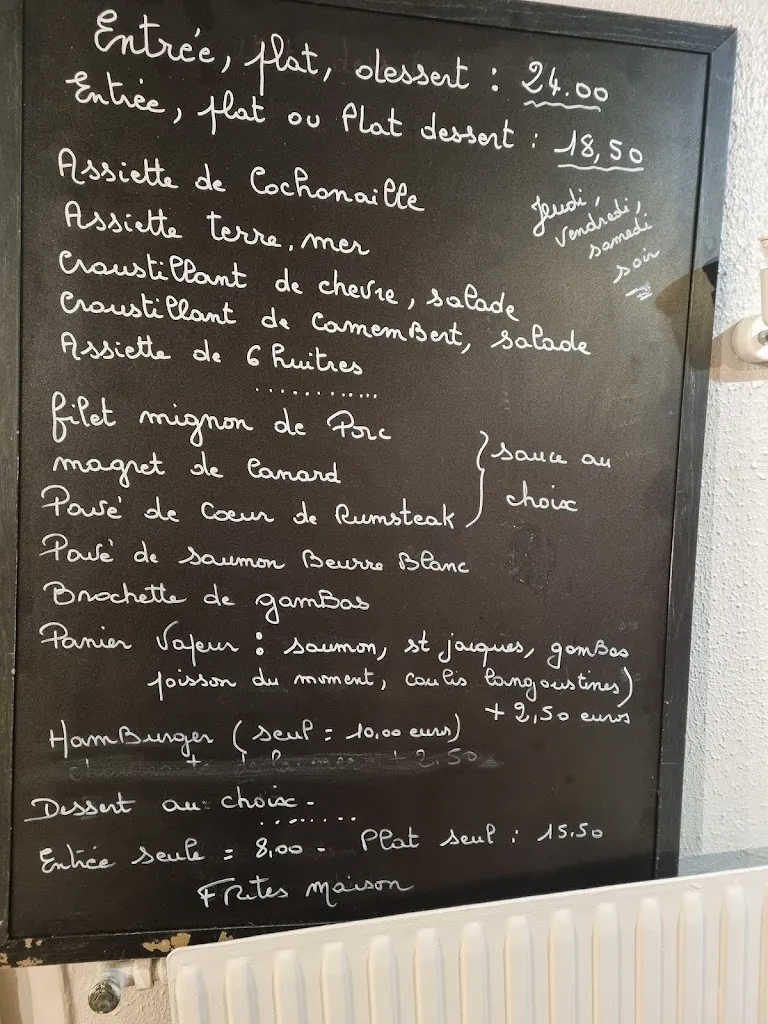 Entrée, plat, dessert : 24.00
Entrée, plat ou Plat dessert : 18,50
Jeudi,
vendredi,
samedi
soir
Assiette de Cochonaille
Assiette terre, mer
Croustillant de chevre, salade
Croustillant de CamemBert, salade
Assiette de 6 huitres
............
filet mignon de Porc
magret de Canard
Pavé de Coeur de Rumsteak
} sauce au
choix
Pavé de saumon Beurre Blanc
Brochette de gamBas
Panier Vapeur : saumon, st jacques, gamBas
poisson du moment, coulis langoustines)
+ 2,50 euros
HamBurger (seul = 10,00 euros)
+ 2,50
Dessert au choix.
........
Entrée seule = 8,00 - Plat seul : 15.50
Frites maison